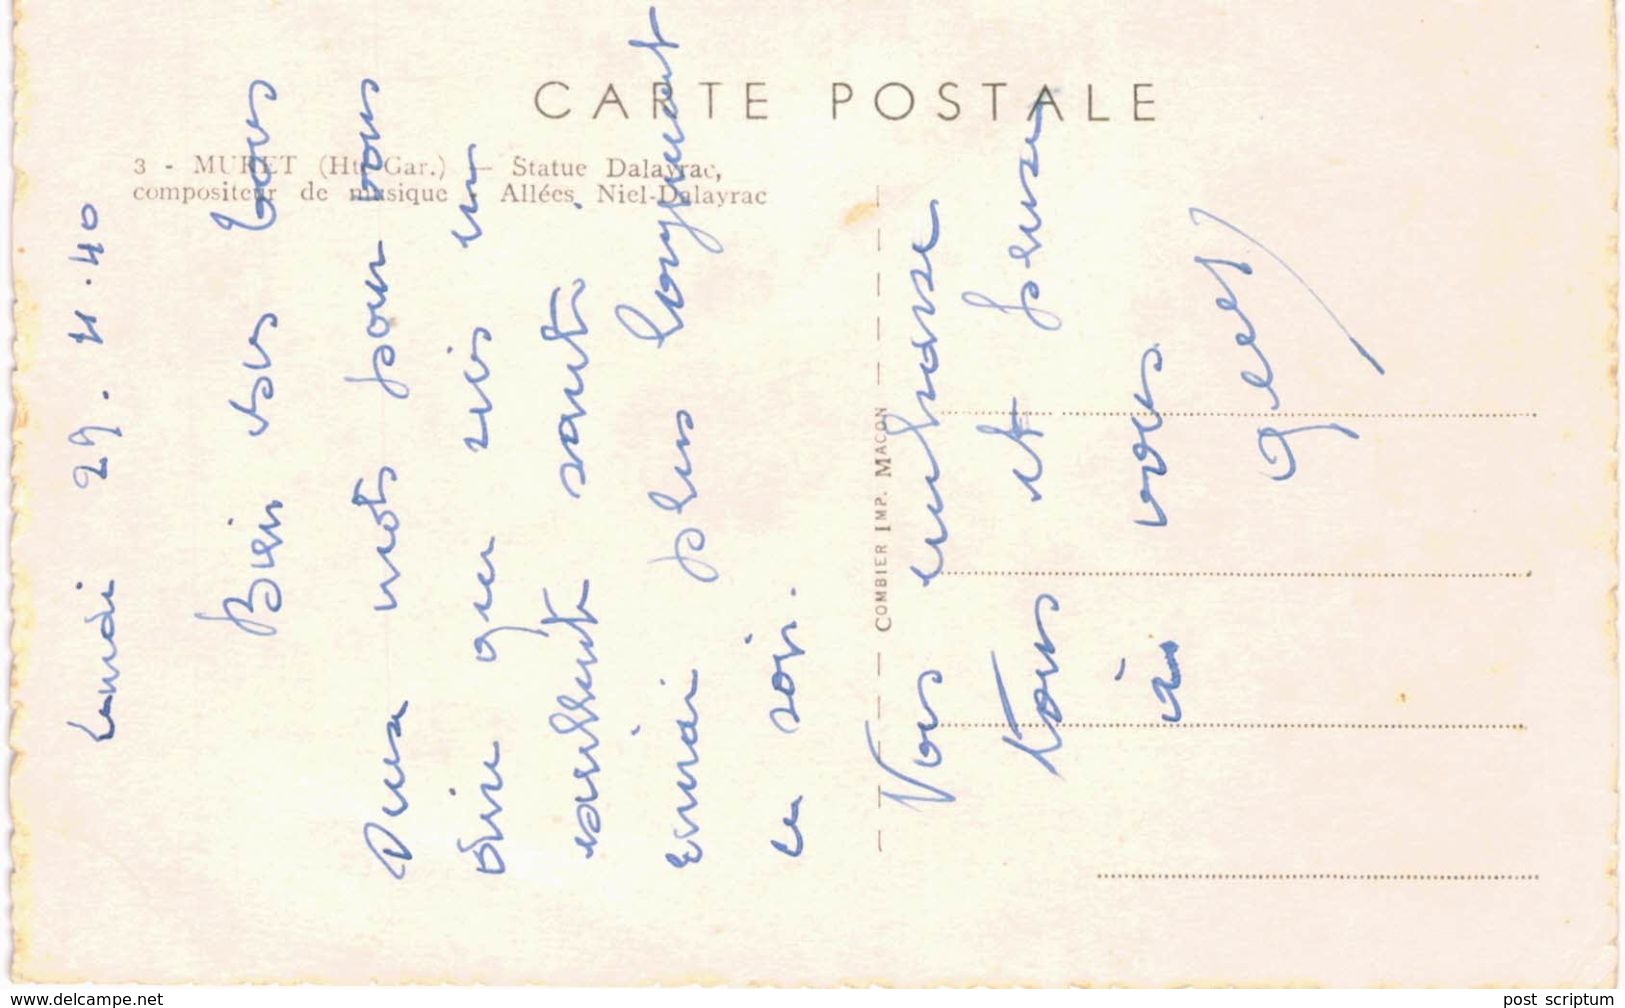 CARTE POSTALE
3 - MURET (Hte-Gar.) — Statue Dalayrac,
compositeur de musique - Allées Niel-Dalayrac
COMBIER IMP. MACON
29.
Bien vous tous
Deux mots pour vous
dire que suis en
excellente santé.
plus longuement
ce soir.
Vous embrasse
tous et pense
à vous
www.delcampe.net
post scriptum